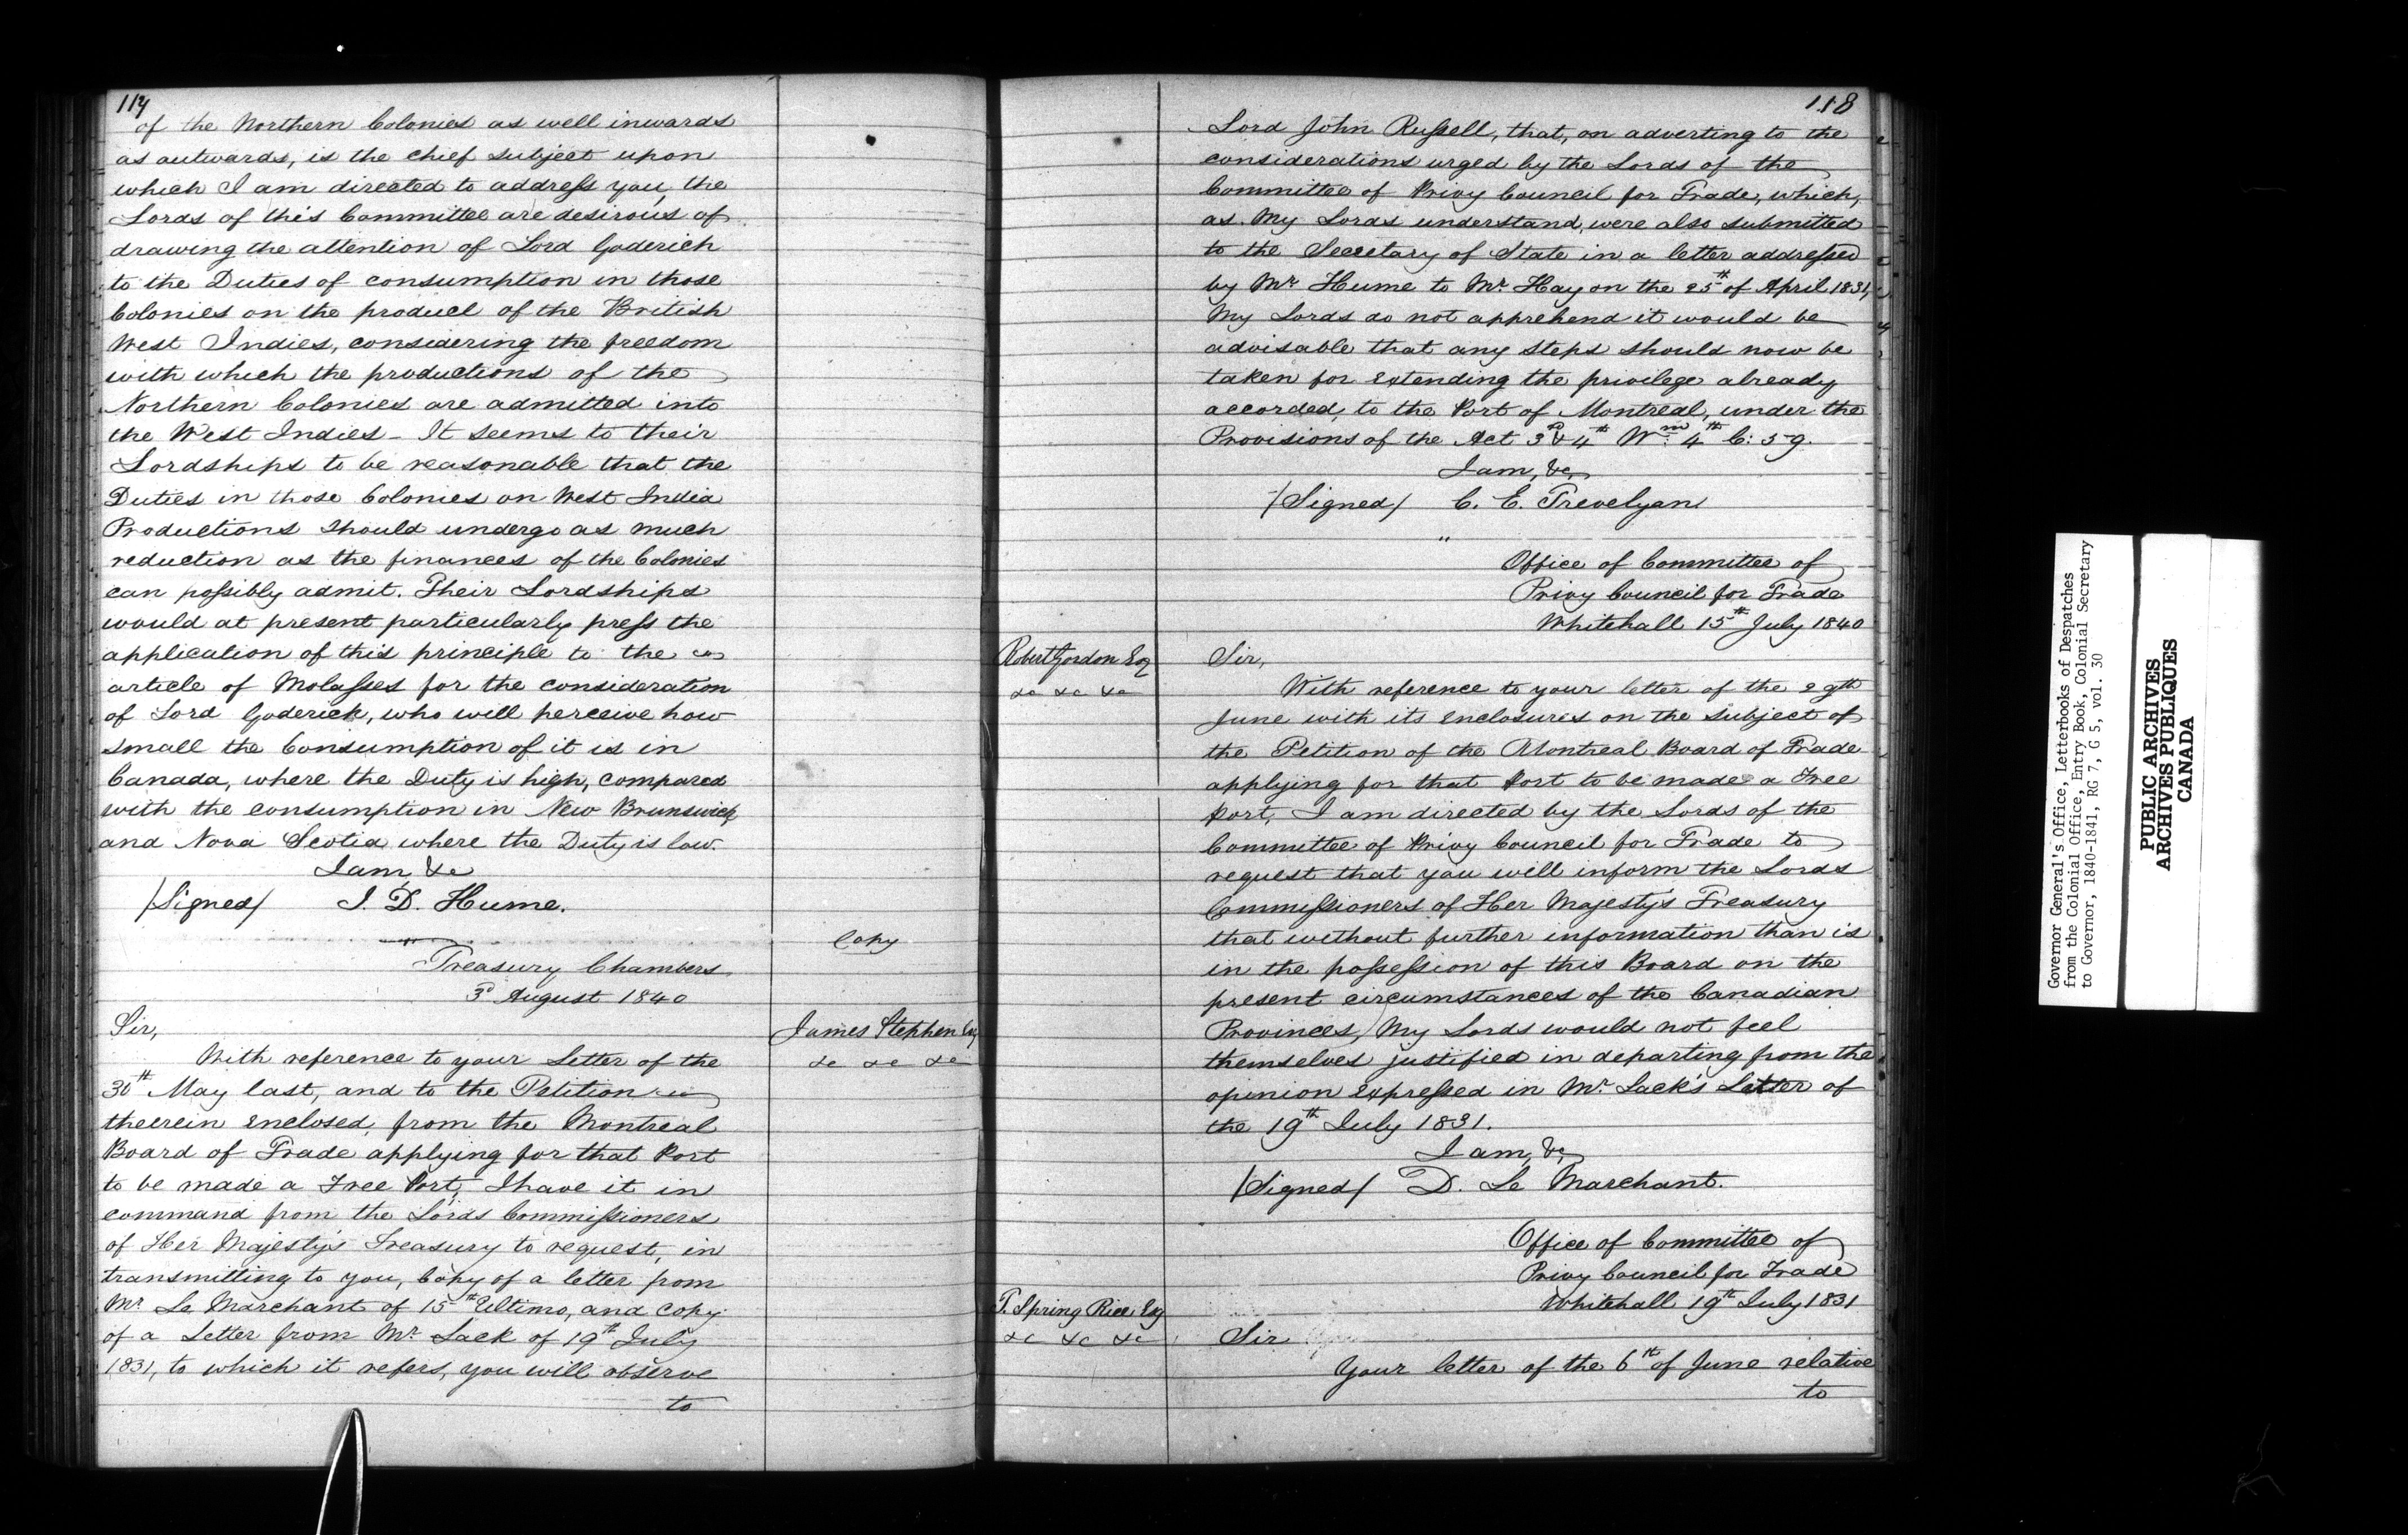 117
of the Northern Colonies as well inwards
as outwards, is the chief subject upon
which I am directed to address you, the
Lords of this Committee are desirous of
drawing the attention of Lord Goderich
to the Duties of consumption in those
Colonies on the produce of the British
West Indies, considering the freedom
with which the productions of the
Northern Colonies are admitted into
the West Indies - It seems to their
Lordships to be reasonable that the
Duties in those Colonies on West India
Productions should undergo as much
reduction as the finances of the Colonies
can possibly admit. Their Lordships
would at present particularly press the
application of this principle to the
article of Molasses for the consideration
of Lord Goderick, who will perceive how
small the Consumption of it is in
Canada, where the Duty is high, compared
with the consumption in New Brunswick
and Nova Scotia where the Duty is low.
I am, &c
/Signed/ J. D. Hume.
Copy
Treasury Chambers
3d August 1840
James Stephen Esq
&c &c &c
Sir,
With reference to your Letter of the
30th May last, and to the Petition
therein enclosed, from the Montreal
Board of Trade applying for that Port
to be made a Free Port, I have it in
command from the Lords Commissioners
of Her Majesty's Treasury to request, in
transmitting to you, Copy of a letter from
Mr Le Marchant of 15th Ultimo, and copy
of a Letter from Mr Lack of 19th July
1831, to which it refers, you will observe
to
118
Lord John Russell, that, on adverting to the
considerations urged by the Lords of the
Committee of Privy Council for Trade, which,
as My Lords understand, were also submitted
to the Secretary of State in a letter addressed
by Mr Hume to Mr Hay on the 25th of April 1831,
My Lords do not apprehend it would be
advisable that any steps should now be
taken for extending the privilege already
accorded, to the Port of Montreal, under the
Provisions of the Act 3d & 4th Wm 4th C: 59.
I am, &c
/Signed/ C. E. Trevelyan
"
Office of Committee of
Privy Council for Trade
Whitehall 15th July 1840
Robert Gordon Esq
&c &c &c
Sir,
With reference to your letter of the 29th
June with its enclosures on the subject of
the Petition of the Montreal Board of Trade
applying for that Port to be made a Free
Port, I am directed by the Lords of the
Committee of Privy Council for Trade to
request that you will inform the Lords
Commissioners of Her Majesty's Treasury
that without further information than is
in the possession of this Board on the
present circumstances of the Canadian
Provinces, My Lords would not feel
themselves justified in departing from the
opinion expressed in Mr Lack's Letter of
the 19th July 1831.
I am, &c,
/Signed/ D. Le Marchant.
Office of Committee of
Privy Council for Trade
Whitehall 19th July 1831
T. Spring Rice Esq
&c &c &c
Sir
Your letter of the 6th of June relative
to
Governor General's Office, Letterbooks of Despatches
from the Colonial Office, Entry Book, Colonial Secretary
to Governor, 1840-1841, RG 7, G 5, vol. 30
PUBLIC ARCHIVES
ARCHIVES PUBLIQUES
CANADA